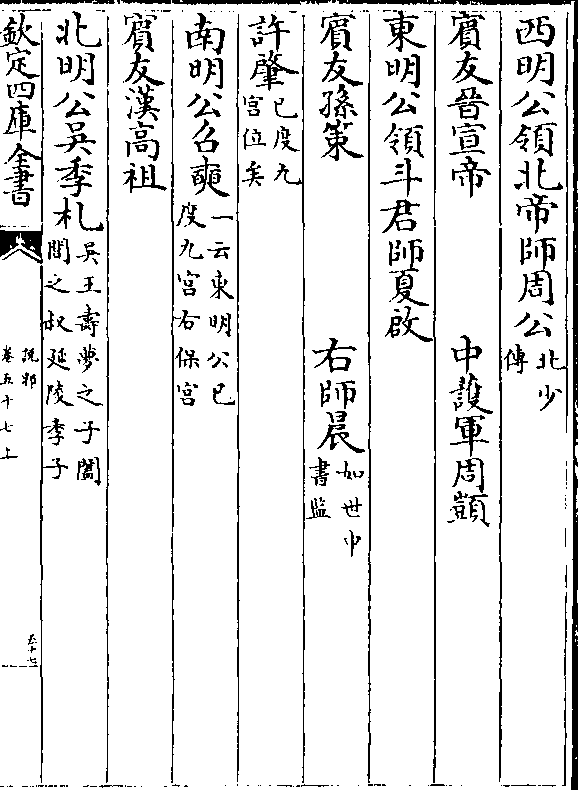 西明公領北帝師周公北少傅
賓友晉宣帝　中護軍周顗
東明公領斗君師夏啟
賓友孫策　右師晨如世中書監
許肇已度九宮位矣
南明公召奭一云東明公已度九宮右保宮
賓友漢高祖
北明公吳季札吳王壽夢之子闔閭之叔延陵季子
欽定四庫全書
說郛
卷五十七上